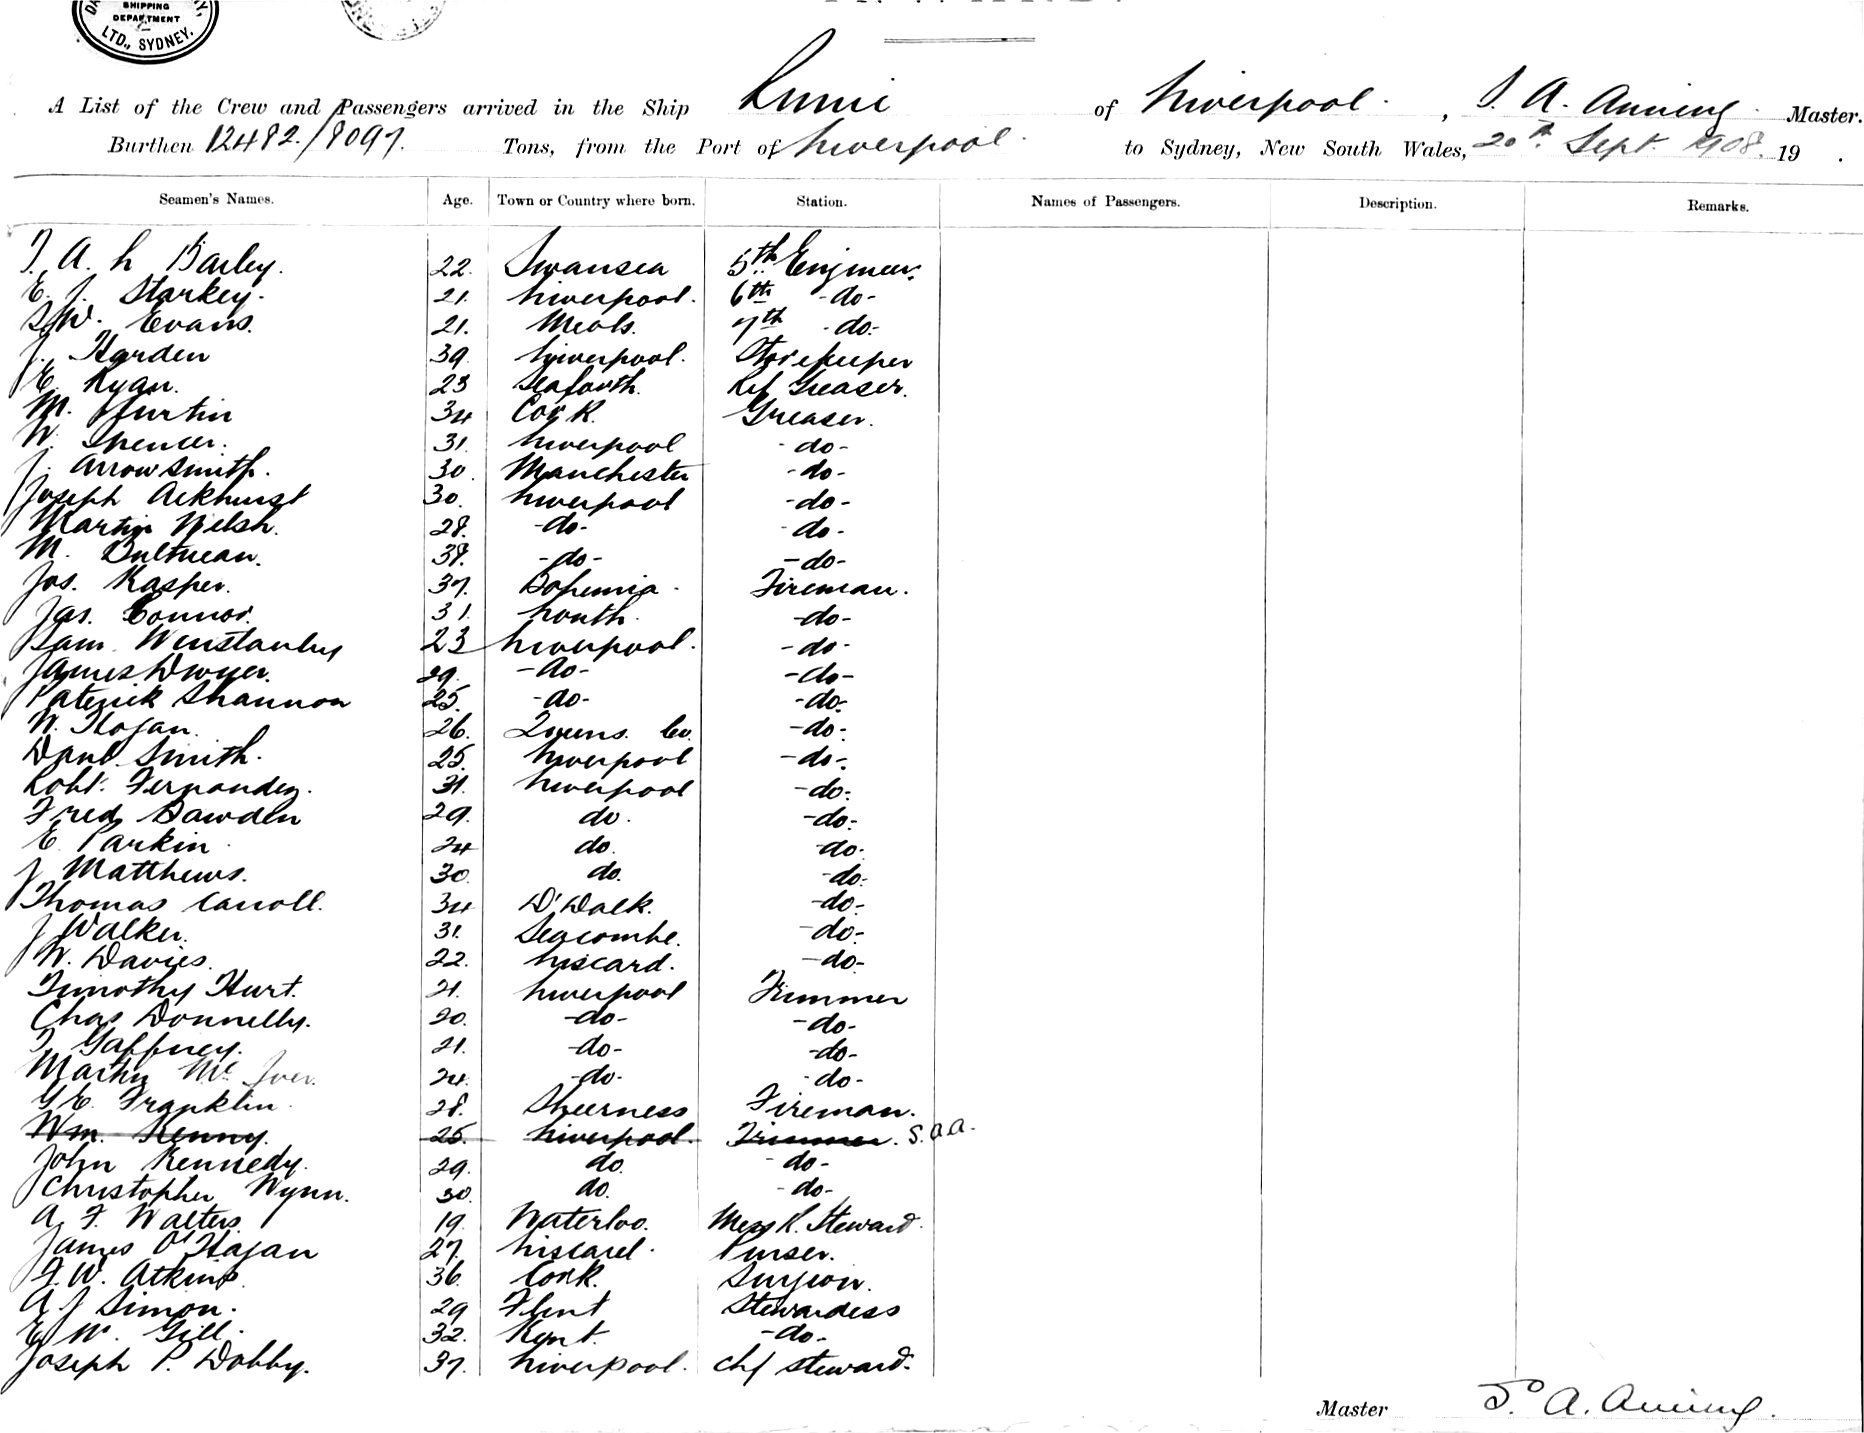 SHIPPING
DEPARTMENT
LTD., SYDNEY.
A List of the Crew and Passengers arrived in the Ship Runic of Liverpool. , A. Anning. Master.
Burthen 12482./8097. Tons, from the Port of Liverpool. to Sydney, New South Wales, 20th Sept. 1908. 19 .
Seamen's Names. Age. Town or Country where born. Station. Names of Passengers. Description. Remarks.
A. L 22. Swansea 5th Engineer.
E. J. Starkey. 21. Liverpool. 6th -do-
W. Evans. 21. Meols. 7th -do-
J. Harden 39. Liverpool. Storekeeper
E. Ryan. 23 Seaforth. Ref Greaser.
M. 34 Cork. Greaser.
W. Spencer. 31. Liverpool -do-
J. Arrowsmith. 30. Manchester -do-
Joseph Ackhurst 30. Liverpool -do-
Martin Welsh. 28. -do- -do-
M. 38. -do- -do-
Jos. Kasper. 37. Bohemia. Fireman.
Jas. Connor. 31. Louth. -do-
Sam Winstanley 23 Liverpool. -do-
James Dwyer. 29. -do- -do-
Paterick Shannon 25. -do- -do-
W. Hogan. 26. Queens. Co. -do-
Danl. Smith. 25. Liverpool -do-
Robt. Fernandez. 31. Liverpool -do-
Fred Dawden 29. do. -do-
E. Parkin 24 do. -do-
J Matthews. 30. do. -do-
Thomas Carroll. 34 D'Dalk. -do-
J Walker. 31. Seacombe. -do-
W. Davies. 22. Liscard. -do-
Timothy Hurt. 21. Liverpool Trimmer
Chas Donnelly. 20. -do- -do-
T. Gaffney. 21. -do- -do-
Martin Mc Iver. 24. -do- -do-
G E. Franklin. 28. Sheerness Fireman.
Wm. Kenny. 25. Liverpool. Trimmer.
John Kennedy. 29. do. -do-
Christopher Wynn. 30. do. -do-
A. F. Walters. 19. Waterloo. Mess R. Steward.
James O'Hagan 27. Liscard. Purser.
F. W. Atkins 36. Cork. Surgeon.
A J Simon. 29 Flint Stewardess
E W. Gill. 32. Kent. -do-
Joseph P. Dobby. 37. Liverpool. Chf Steward.
Master A. Anning.